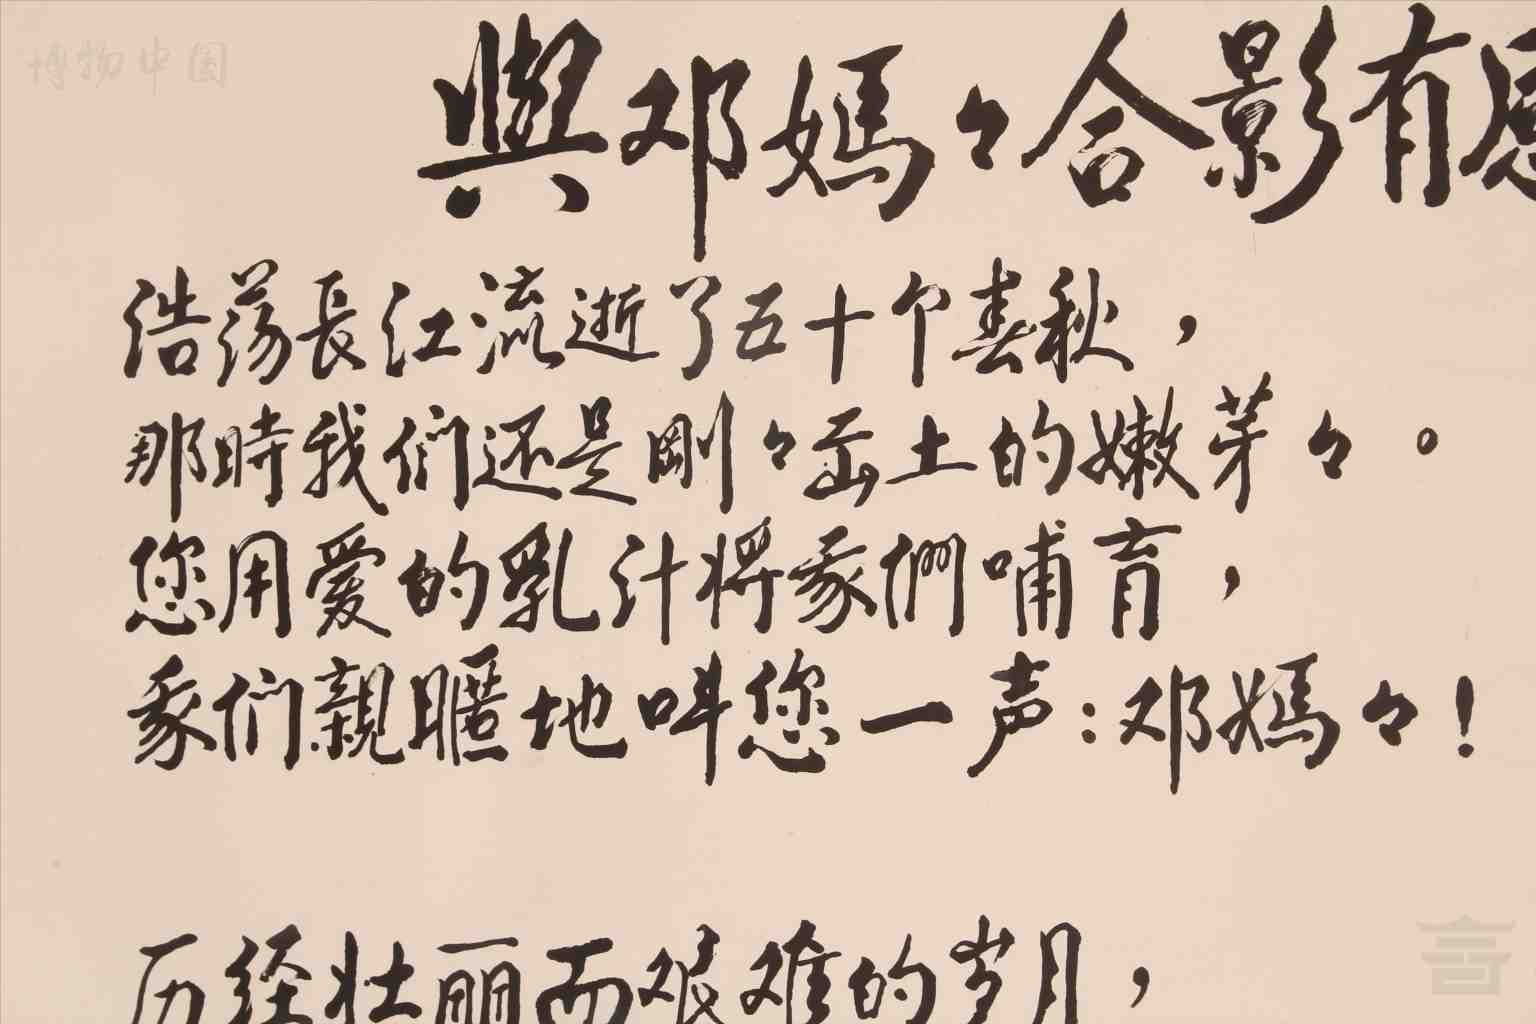 博物中国
與邓媽々合影有感
浩荡長江流逝了五十个春秋，
那時我们还是剛々出土的嫩芽々。
您用爱的乳汁将我們哺育，
我们親暱地叫您一声：邓媽々！
历经壮丽而艰难的岁月，